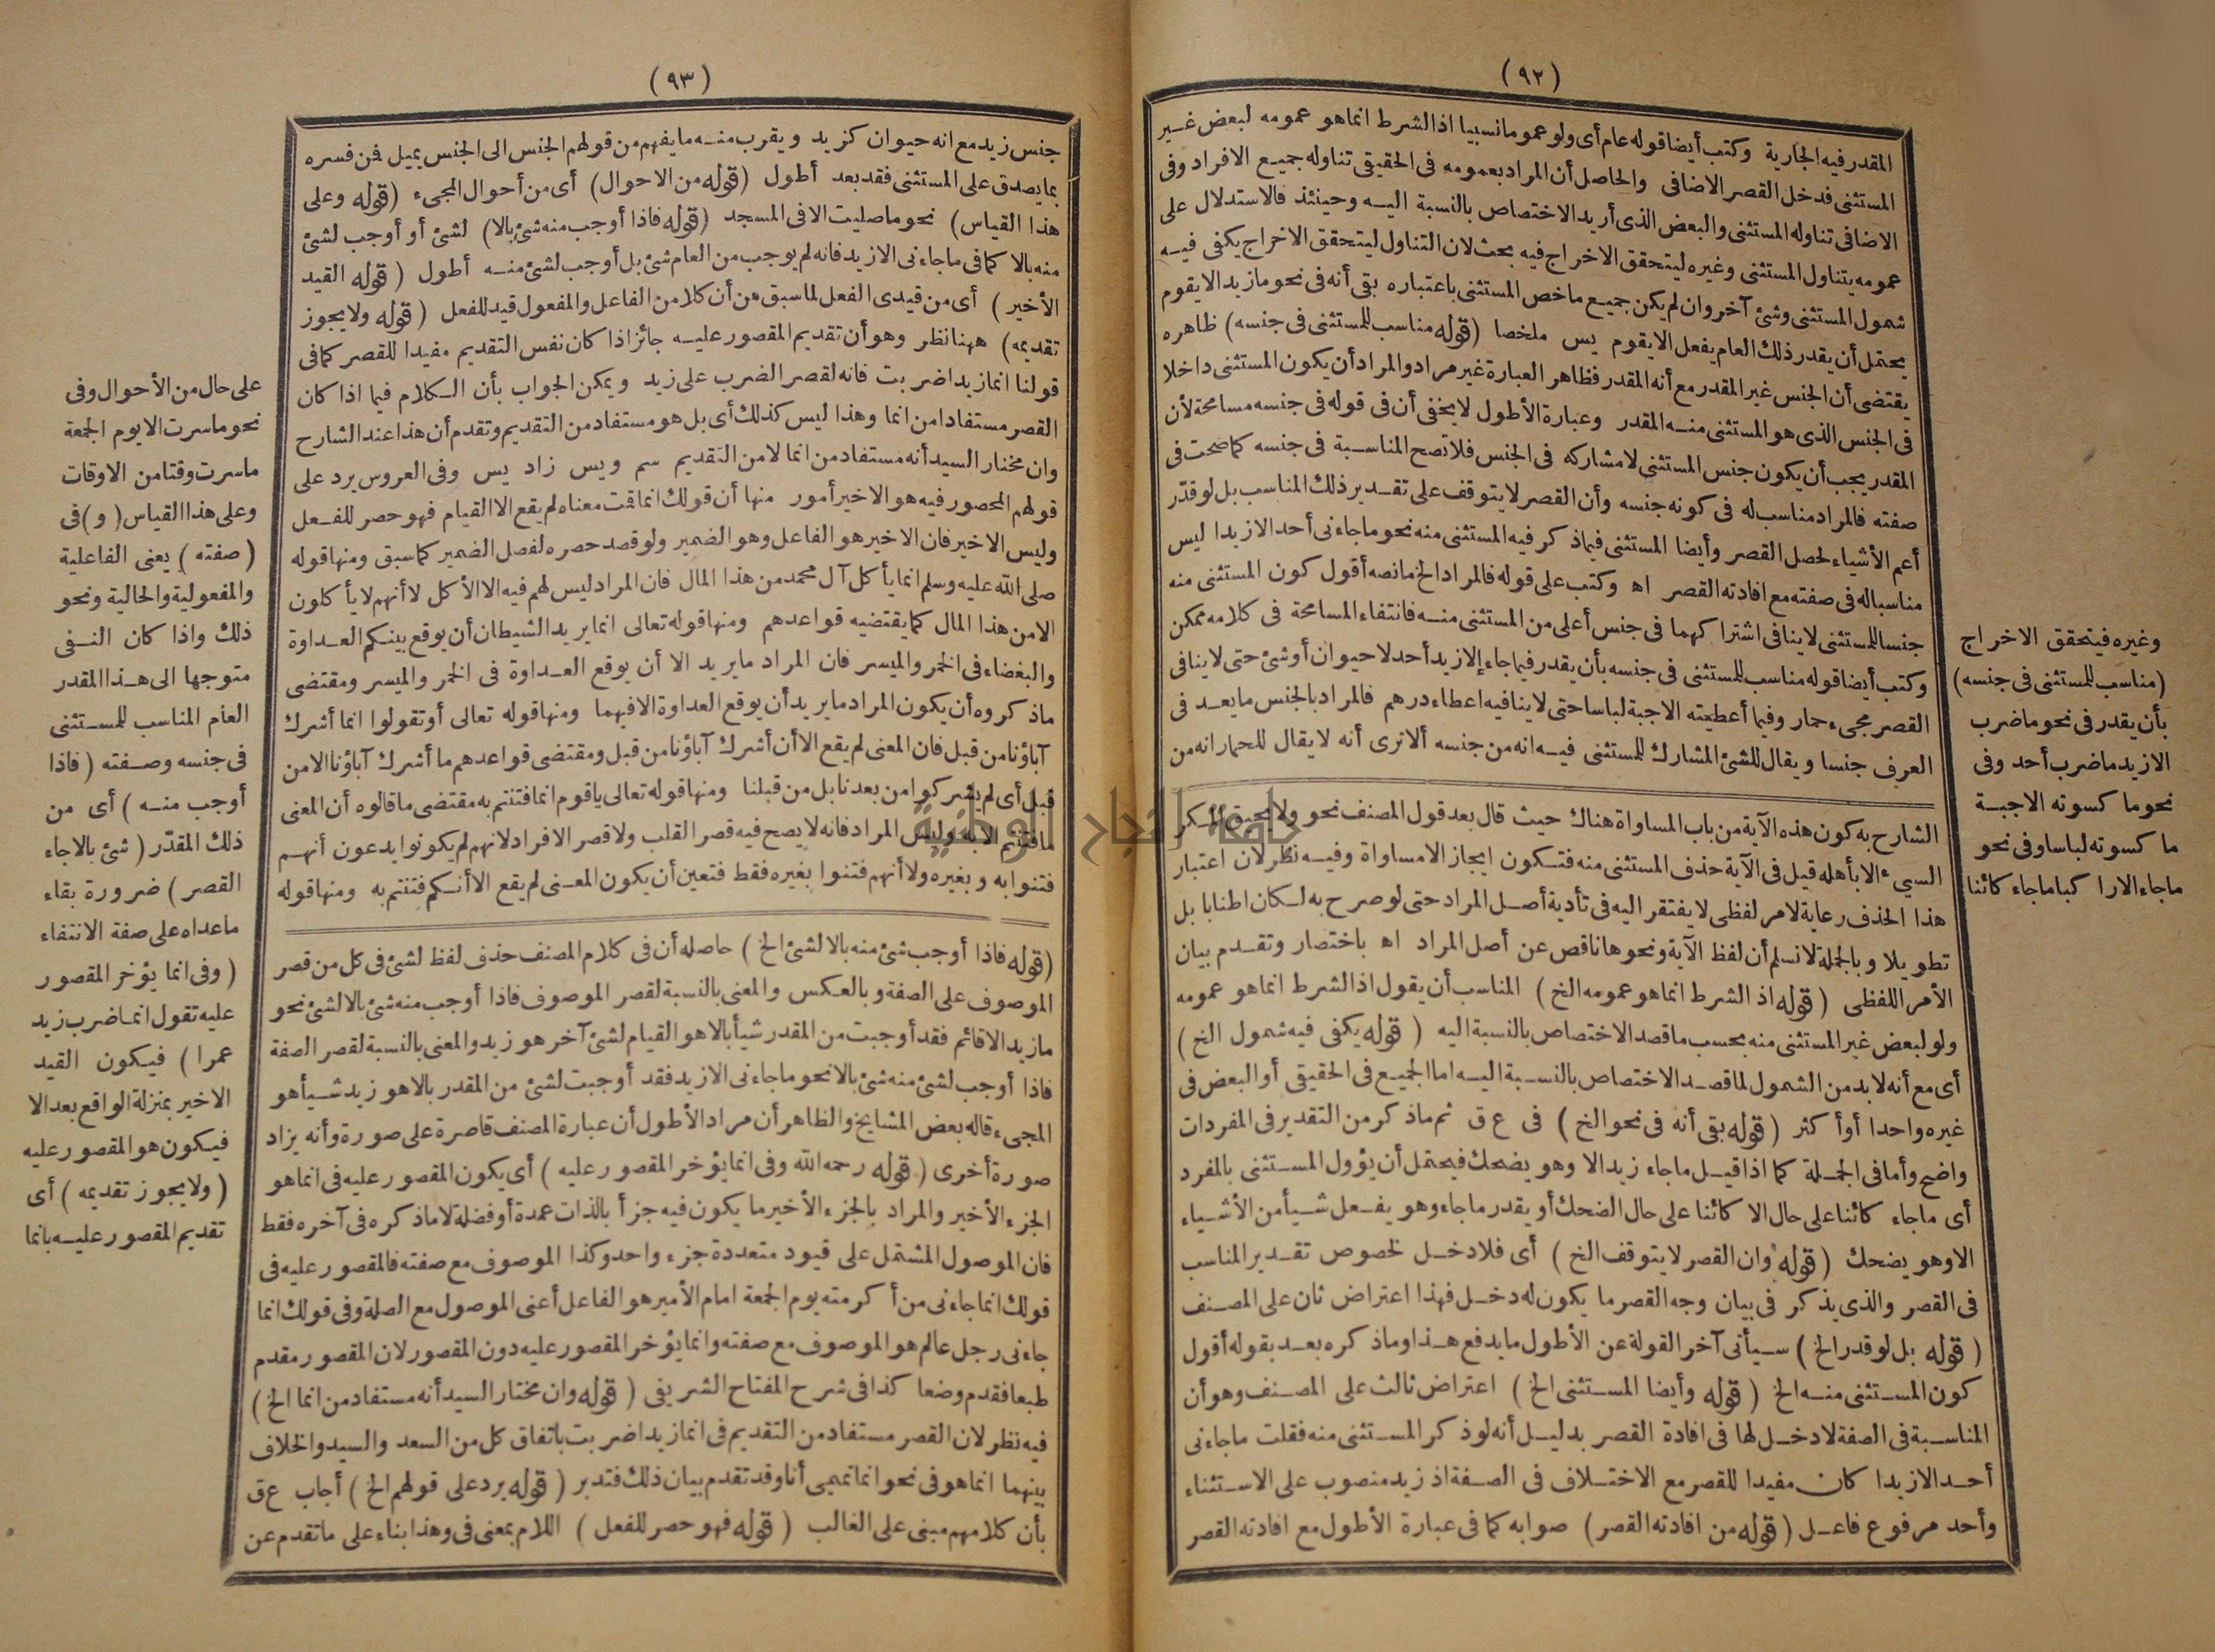 (٩٢)
المقدر فيه الجارية وكتب أيضا قوله عام أى ولو عموما نسبيا اذ الشرط انما هو عمومه لبعض غير
المستثنى فدخل القصر الاضافى والحاصل أن المراد بعمومه فى الحقيقى تناوله جميع الافراد وفى
الاضافى تناوله المستثنى والبعض الذى أريد الاختصاص بالنسبة اليه وحينئذ فالاستدلال على
عمومه يتناول المستثنى وغيره ليتحقق الاخراج فيه بحث لان التناول ليتحقق الاخراج يكفى فيه
شمول المستثنى وشئ آخر وان لم يكن جميع ماخص المستثنى باعتباره بقى أنه فى نحو مازيد الا يقوم
يحتمل أن يقدر ذلك العام يفعل الا يقوم يس ملخصا (قوله مناسب للمستثنى فى جنسه) ظاهره
يقتضى أن الجنس غير المقدر مع أنه المقدر فظاهر العبارة غير مراد والمراد أن يكون المستثنى داخلا
فى الجنس الذى هو المستثنى منه المقدر وعبارة الأطول لا يخفى أن فى قوله فى جنسه مسامحة لأن
المقدر يجب أن يكون جنس المستثنى لا مشاركه فى الجنس فلا تصح المناسبة فى جنسه كما صحت فى
صفته فالمراد مناسب له فى كونه جنسه وأن القصر لا يتوقف على تقدير ذلك المناسب بل لو قدّر
أعم الأشياء لحصل القصر وأيضا المستثنى فيما ذكر فيه المستثنى منه نحو ما جاءنى أحد الا زيدا ليس
مناسبا له فى صفته مع افادته القصر اه وكتب على قوله فالمراد الخ مانصه أقول كون المستثنى منه
جنسا للمستثنى لا ينافى اشتراكهما فى جنس أعلى من المستثنى منه فانتفاء المسامحة فى كلامه ممكن
وكتب أيضا قوله مناسب للمستثنى فى جنسه بأن يقدر فيما جاء إلا زيد أحد لا حيوان أو شئ حتى لا ينافى
القصر مجىء حمار وفيما أعطيته الا جبة لباسا حتى لا ينافيه اعطاء درهم فالمراد بالجنس ما يعد فى
العرف جنسا ويقال للشئ المشارك للمستثنى فيه انه من جنسه ألا ترى أنه لا يقال للحمار انه من
الشارح به كون هذه الآية من باب المساواة هناك حيث قال بعد قول المصنف نحو ولا يحيق المكر
السيء الا بأهله قيل فى الآية حذف المستثنى منه فتكون ايجازا لا مساواة وفيه نظر لان اعتبار
هذا الحذف رعاية لامر لفظى لا يفتقر اليه فى تأدية أصل المراد حتى لو صرح به لكان اطنابا بل
تطويلا وبالجملة لا نسلم أن لفظ الآية ونحوها ناقص عن أصل المراد اه باختصار وتقدم بيان
الأمر اللفظى (قوله اذ الشرط انما هو عمومه الخ) المناسب أن يقول اذ الشرط انما هو عمومه
ولو لبعض غير المستثنى منه بحسب ما قصد الاختصاص بالنسبة اليه (قوله يكفى فيه شمول الخ)
أى مع أنه لابد من الشمول لما قصد الاختصاص بالنسبة اليه اما الجميع فى الحقيقى أو البعض فى
غيره واحدا أو أكثر (قوله بقى أنه فى نحو الخ) فى ع ق ثم ماذكر من التقدير فى المفردات
واضح وأما فى الجملة كما اذا قيل ما جاء زيد الا وهو يضحك فيحتمل أن يؤول المستثنى بالمفرد
أى ما جاء كائنا على حال الا كائنا على حال الضحك أو يقدر ما جاء وهو يفعل شيأ من الأشياء
الا وهو يضحك (قوله وان القصر لا يتوقف الخ) أى فلا دخل لخصوص تقدير المناسب
فى القصر والذى يذكر فى بيان وجه القصر ما يكون له دخل فهذا اعتراض ثان على المصنف
(قوله بل لو قدر الخ) سيأتى آخر القولة عن الأطول ما يدفع هذا وما ذكره بعد بقوله أقول
كون المستثنى منه الخ (قوله وأيضا المستثنى الخ) اعتراض ثالث على المصنف وهو أن
المناسبة فى الصفة لا دخل لها فى افادة القصر بدليل أنه لو ذكر المستثنى منه فقلت ما جاءنى
أحد الا زيدا كان مفيدا للقصر مع الاختلاف فى الصفة اذ زيد منصوب على الاستثناء
وأحد مرفوع فاعل (قوله من افادته القصر) صوابه كما فى عبارة الأطول مع افادته القصر
وغيره فيتحقق الاخراج
(مناسب للمستثنى فى جنسه)
بأن يقدر فى نحو ماضرب
الا زيد ماضرب أحد وفى
نحو ما كسوته الا جبة
ما كسوته لباسا وفى نحو
ما جاء الا راكبا ما جاء كائنا
(٩٣)
جنس زيد مع انه حيوان كزيد ويقرب منه ما يفهم من قولهم الجنس الى الجنس يميل فمن فسره
بما يصدق على المستثنى فقد بعد أطول (قوله من الاحوال) أى من أحوال المجىء (قوله وعلى
هذا القياس) نحو ما صليت الا فى المسجد (قوله فاذا أوجب منه شئ بالا) لشئ أو أوجب لشئ
منه بالا كما فى ما جاءنى الا زيد فانه لم يوجب من العام شئ بل أوجب لشئ منه أطول (قوله القيد
الأخير) أى من قيدى الفعل لما سبق من أن كلا من الفاعل والمفعول قيد للفعل (قوله ولا يجوز
تقديمه) ههنا نظر وهو أن تقديم المقصور عليه جائز اذا كان نفس التقديم مفيدا للقصر كما فى
قولنا انما زيدا ضربت فانه لقصر الضرب على زيد ويمكن الجواب بأن الكلام فيما اذا كان
القصر مستفادا من انما وهذا ليس كذلك أى بل هو مستفاد من التقديم وتقدم أن هذا عند الشارح
وان مختار السيد أنه مستفاد من انما لا من التقديم سم ويس زاد يس وفى العروس يرد على
قولهم المحصور فيه هو الاخير أمور منها أن قولك انما قمت معناه لم يقع الا القيام فهو حصر للفعل
وليس الاخير فان الاخير هو الفاعل وهو الضمير ولو قصد حصره لفصل الضمير كما سبق ومنها قوله
صلى الله عليه وسلم انما يأكل آل محمد من هذا المال فان المراد ليس لهم فيه الا الأكل لا أنهم لا يأكلون
الا من هذا المال كما يقتضيه قواعدهم ومنها قوله تعالى انما يريد الشيطان أن يوقع بينكم العداوة
والبغضاء فى الخمر والميسر فان المراد ما يريد الا أن يوقع العداوة فى الخمر والميسر ومقتضى
ماذكروه أن يكون المراد ما يريد أن يوقع العداوة الا فيهما ومنها قوله تعالى أو تقولوا انما أشرك
آباؤنا من قبل فان المعنى لم يقع الا أن أشرك آباؤنا من قبل ومقتضى قواعدهم ما أشرك آباؤنا الا من
قبل أى لم يشركوا من بعدنا بل من قبلنا ومنها قوله تعالى يا قوم انما فتنتم به مقتضى ما قالوه أن المعنى
ما فتنتم الا به وليس المراد فانه لا يصح فيه قصر القلب ولا قصر الافراد لانهم لم يكونوا يدعون أنهم
فتنوا به وبغيره ولا أنهم فتنوا بغيره فقط فتعين أن يكون المعنى لم يقع الا أنكم فتنتم به ومنها قوله
(قوله فاذا أوجب شئ منه بالا لشئ الخ) حاصله أن فى كلام المصنف حذف لفظ لشئ فى كل من قصر
الموصوف على الصفة وبالعكس والمعنى بالنسبة لقصر الموصوف فاذا أوجب منه شئ بالا لشئ نحو
مازيد الا قائم فقد أوجبت من المقدر شيأ بالا هو القيام لشئ آخر هو زيد والمعنى بالنسبة لقصر الصفة
فاذا أوجب لشئ منه شئ بالا نحو ما جاءنى الا زيد فقد أوجبت لشئ من المقدر بالا هو زيد شيأ هو
المجىء قاله بعض المشايخ والظاهر أن مراد الأطول أن عبارة المصنف قاصرة على صورة وأنه يزاد
صورة أخرى (قوله رحمه الله وفى انما يؤخر المقصور عليه) أى يكون المقصور عليه فى انما هو
الجزء الأخير والمراد بالجزء الأخير ما يكون فيه جزأ بالذات عمدة أو فضلة لا ماذكره فى آخره فقط
فان الموصول المشتمل على قيود متعددة جزء واحد وكذا الموصوف مع صفته فالمقصور عليه فى
قولك انما جاءنى من أكرمته يوم الجمعة امام الأمير هو الفاعل أعنى الموصول مع الصلة وفى قولك انما
جاءنى رجل عالم هو الموصوف مع صفته وانما يؤخر المقصور عليه دون المقصور لان المقصور مقدم
طبعا فقدم وضعا كذا فى شرح المفتاح الشريفى (قوله وان مختار السيد أنه مستفاد من انما الخ)
فيه نظر لان القصر مستفاد من التقديم فى انما زيدا ضربت باتفاق كل من السعد والسيد والخلاف
بينهما انما هو فى نحو انما تميمى أنا وقد تقدم بيان ذلك فتدبر (قوله يرد على قولهم الخ) أجاب ع ق
بأن كلامهم مبنى على الغالب (قوله فهو حصر للفعل) اللام بمعنى فى وهذا بناء على ماتقدم عن
على حال من الأحوال وفى
نحو ماسرت الا يوم الجمعة
ماسرت وقتا من الاوقات
وعلى هذا القياس (و) فى
(صفته) يعنى الفاعلية
والمفعولية والحالية ونحو
ذلك واذا كان النفى
متوجها الى هذا المقدر
العام المناسب للمستثنى
فى جنسه وصفته (فاذا
أوجب منه) أى من
ذلك المقدّر (شئ بالا جاء
القصر) ضرورة بقاء
ماعداه على صفة الانتفاء
(وفى انما يؤخر المقصور
عليه تقول انما ضرب زيد
عمرا) فيكون القيد
الاخير بمنزلة الواقع بعد الا
فيكون هو المقصور عليه
(ولا يجوز تقديمه) أى
تقديم المقصور عليه بانما
جامعة النجاح الوطنية